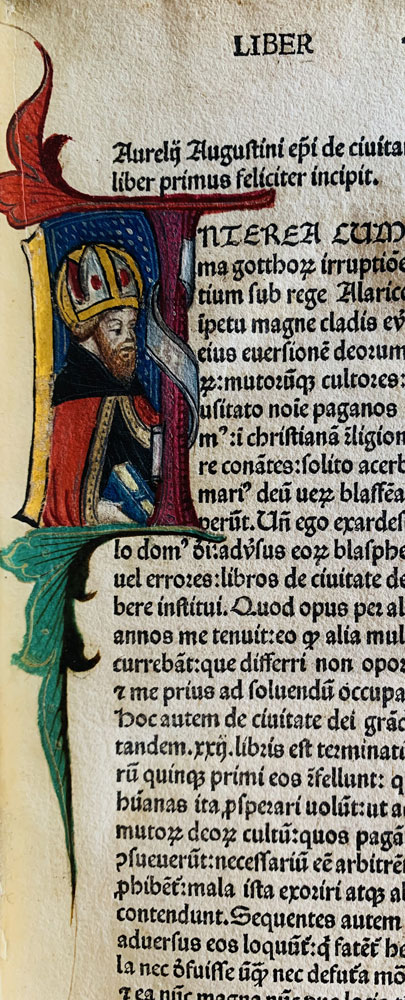 LIBER
Aurelij Augustini ep̄i de ciuita
liber primus feliciter incipit.
INTEREA CUM
ma gotthoꝝ irruptiōe
tium sub rege Alarico
īpetu magne cladis
eius euersionē deorum
ꝝ: mutorūqꝫ cultores:
usitato noīe paganos
mꝰ: ī christianā religion
re conātes: solito acerb
mariꝰ deū ueꝝ blasfēa
perūt. Uñ ego exardes
lo domꝰ dī: adv̄sus eoꝝ blasphe
uel errores: libros de ciuitate de
bere institui. Quod opus per al
annos me tenuit: eo ꝙ alia mul
currebāt: que differri non opor
⁊ me prius ad soluendū occupa
hoc autem de ciuitate dei
tandem .xxij. libris est terminatū
rū quinqꝫ primi eos r̄fellunt: q
hūanas ita ꝓsperari uolūt: ut a
mutoꝝ deoꝝ cultū: quos pagā
ꝯsueuerūt: necessariū eē arbitrē
ꝓhibēt̄: mala ista exoriri atqꝫ al
contendunt. Sequentes autem
aduersus eos loquūt̄: fatēt̄ he
la nec d̄fuisse ūqꝫ nec defutā mō
⁊ ea nūc magna nūc